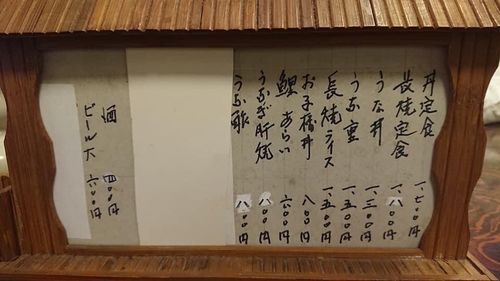 丼定食 一、七〇〇円
長焼定食 一、八〇〇円
うな丼 一、三〇〇円
うな重 一、五〇〇円
長焼ライス 一、五〇〇円
お子様丼 八〇〇円
鯉あらい 六〇〇円
うなぎ肝焼 八〇〇円
うな酢 八〇〇円
酒 四〇〇円
ビール大 六〇〇円